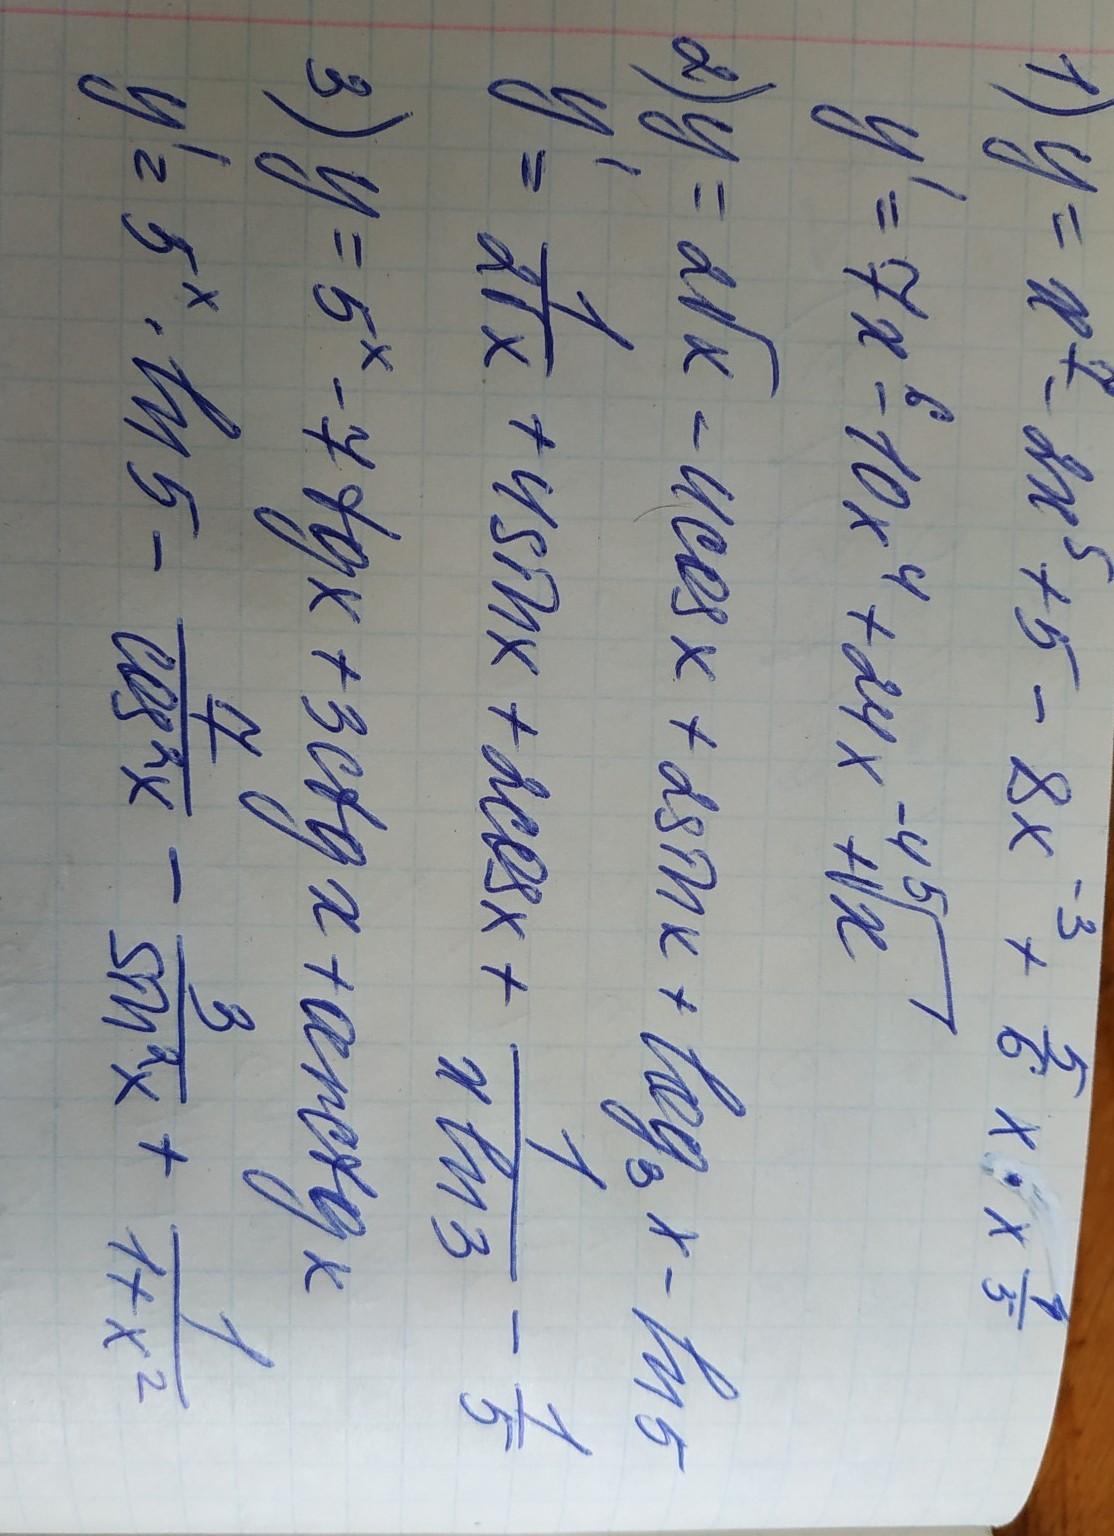 1) y = x⁷ - 2x⁵ + 5 - 8x⁻³ + 5/6 x · x^(1/5)
y' = 7x⁶ - 10x⁴ + 24x⁻⁴ + ⁵√x
2) y = 2√x - 4cos x + 2sin x + log₃ x - ln 5
y' = 1/(2√x) + 4sin x + 2cos x + 1/(x ln 3) - 1/5
3) y = 5ˣ - 7tg x + 3ctg x + arcctg x
y' = 5ˣ · ln 5 - 7/(cos²x) - 3/(sin²x) + 1/(1+x²)